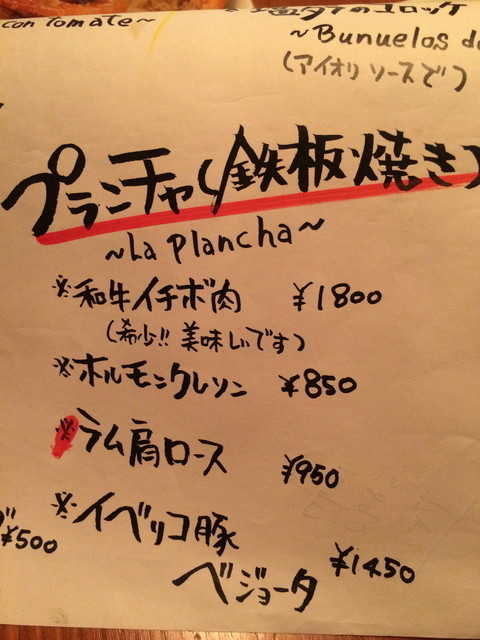 con tomate~
塩タラのコロッケ
~Bunuelos de
(アイオリソースで)
プランチャ(鉄板焼き)
~La plancha~
※和牛イチボ肉 ¥1800
(希少!! 美味しいです)
※ホルモンクレソン ¥850
※ラム肩ロース ¥950
※イベリコ豚
ベジョータ ¥1450
¥500